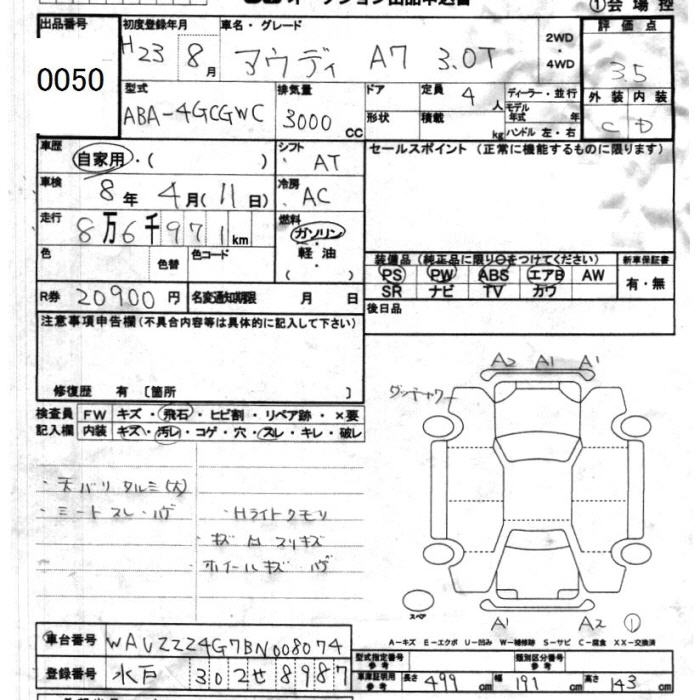 ①会場控
出品番号
0050
初度登録年月
H23 8月
車名・グレード
アウディ A7 3.0T
2WD
・
4WD
評価点
3.5
外装 内装
C D
型式
ABA-4GCGWC
排気量
3000cc
ドア
形状
定員 4人
積載 kg
ディーラー・並行
モデル年式 年
ハンドル 左・右
車歴
自家用・( )
シフト
AT
車検
8年4月(11日)
冷房
AC
走行
8万6千971km
燃料
ガソリン
・
軽油
( )
色
色替
色コード
R券 20900円
名変通知期限 月 日
セールスポイント (正常に機能するものに限ります)
装備品 (純正品に限り○をつけてください)
PS PW ABS エアB AW
SR ナビ TV カワ
新車保証書
有・無
後日品
注意事項申告欄(不具合内容等は具体的に記入して下さい)
修復歴 有 〔箇所 〕
検査員記入欄
FW キズ・飛石・ヒビ割・リペア跡・×要
内装 キズ・汚レ・コゲ・穴・スレ・キレ・破レ
・天バリタルミ(大)
・シートスレ・ハゲ
・Hライトクモリ
・キズ 凹 スリキズ
ホイールキズ ハゲ
A2 A1 A1
スペア
A1 A2 ①
A-キズ E-エクボ U-凹み W-補修跡 S-サビ C-腐食 XX-交換済
車台番号 WAUZZZ4G7BN008074
登録番号 水戸 302せ8987
型式指定番号 参考
類別区分番号 参考
車庫証明用 参考
長さ 499cm 幅 191cm 高さ 143cm